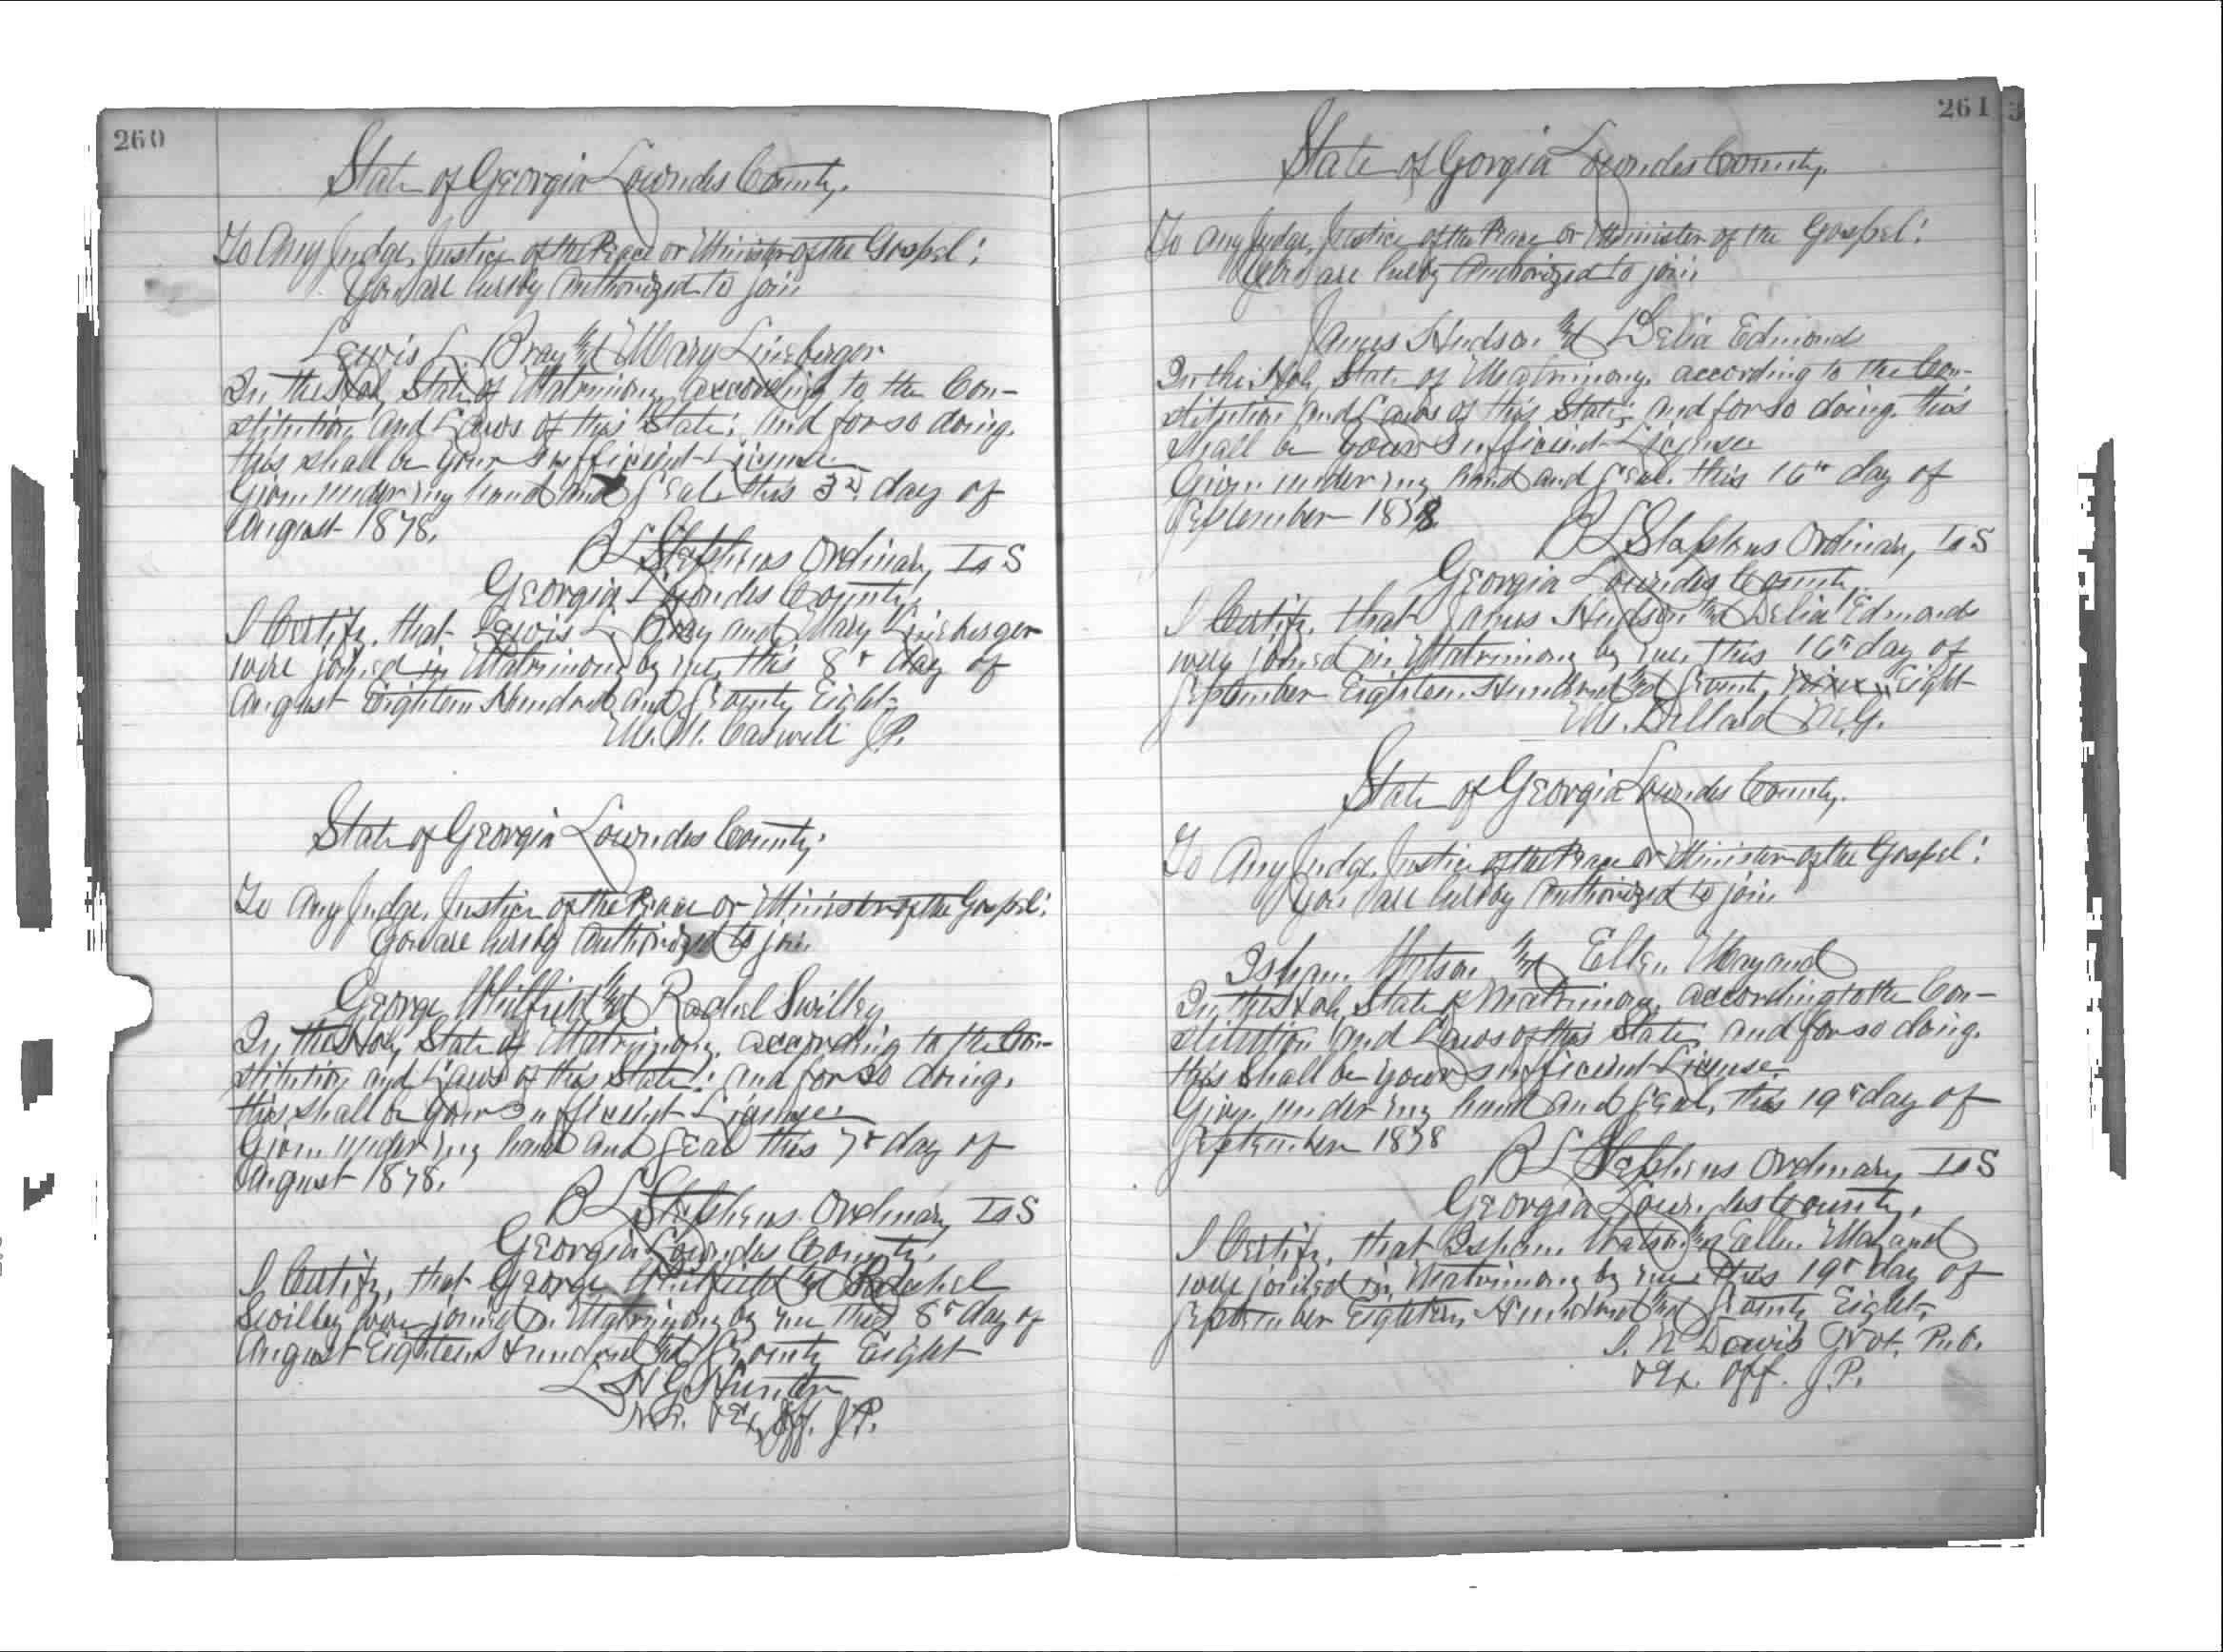 260
State of Georgia Lowndes County.
To Any Judge, Justice of the Peace or Minister of the Gospel:
You are hereby Authorized to join
Lewis L. Bray and Mary Lineberger
In the Holy State of Matrimony, according to the Con-
stitution and Laws of this State; and for so doing.
this shall be your sufficient License
Given under my hand and Seal this 3d day of
August 1878.
B L Stephens Ordinary, L S
Georgia Lowndes County.
I Certify, that Lewis L. Bray and Mary Lineberger
were joined in Matrimony by me, this 8th day of
August Eighteen Hundred and Seventy Eight
M. M. Caswell J.P.
State of Georgia Lowndes County.
To Any Judge, Justice of the Peace or Minister of the Gospel:
You are hereby Authorized to join
George Whitfield and Rachel Swilley
In the Holy State of Matrimony, according to the Con-
stitution and Laws of this State: and for so doing.
this shall be your sufficient License
Given under my hand and Seal this 7th day of
August 1878.
B L Stephens Ordinary L S
Georgia Lowndes County.
I Certify, that George Whitfield and Rachel
Swilley were joined in Matrimony by me this 8th day of
August Eighteen Hundred and Seventy Eight
Hunter
N.P. & Ex. Off. J.P.
261
State of Gorgia Lowndes County.
To Any Judge, Justice of the Peace or Minister of the Gospel:
You are hereby Authorized to join
James Hudson and Delia Edmonds
In the Holy State of Matrimony, according to the Con-
stitution and Laws of this State; and for so doing. this
shall be your sufficient License
Given under my hand and Seal, this 16th day of
September 1878
B L Stephens Ordinary, L S
Georgia Lowndes County
I Certify, that James Hudson and Delia Edmonds
were joined in Matrimony by me, this 16th day of
September Eighteen Hundred and Seventy Nine Eight
M. Dillard M.G.
State of Georgia Lowndes County.
To Any Judge, Justice of the Peace or Minister of the Gospel:
You are hereby Authorized to join
Isham Watson and Ellen Mayand
In the Holy State of Matrimony, according to the Con-
stitution and Laws of this State; and for so doing.
this shall be your sufficient License.
Given under my hand and Seal, this 19th day of
September 1878
B L Stephens Ordinary L S
Georgia Lowndes County.
I Certify, that Isham Watson and Ellen Mayand
were joined in Matrimony by me, this 19th day of
September Eighteen Hundred and Seventy Eight,
Davis Not. Pub.
& Ex. Off. J.P.